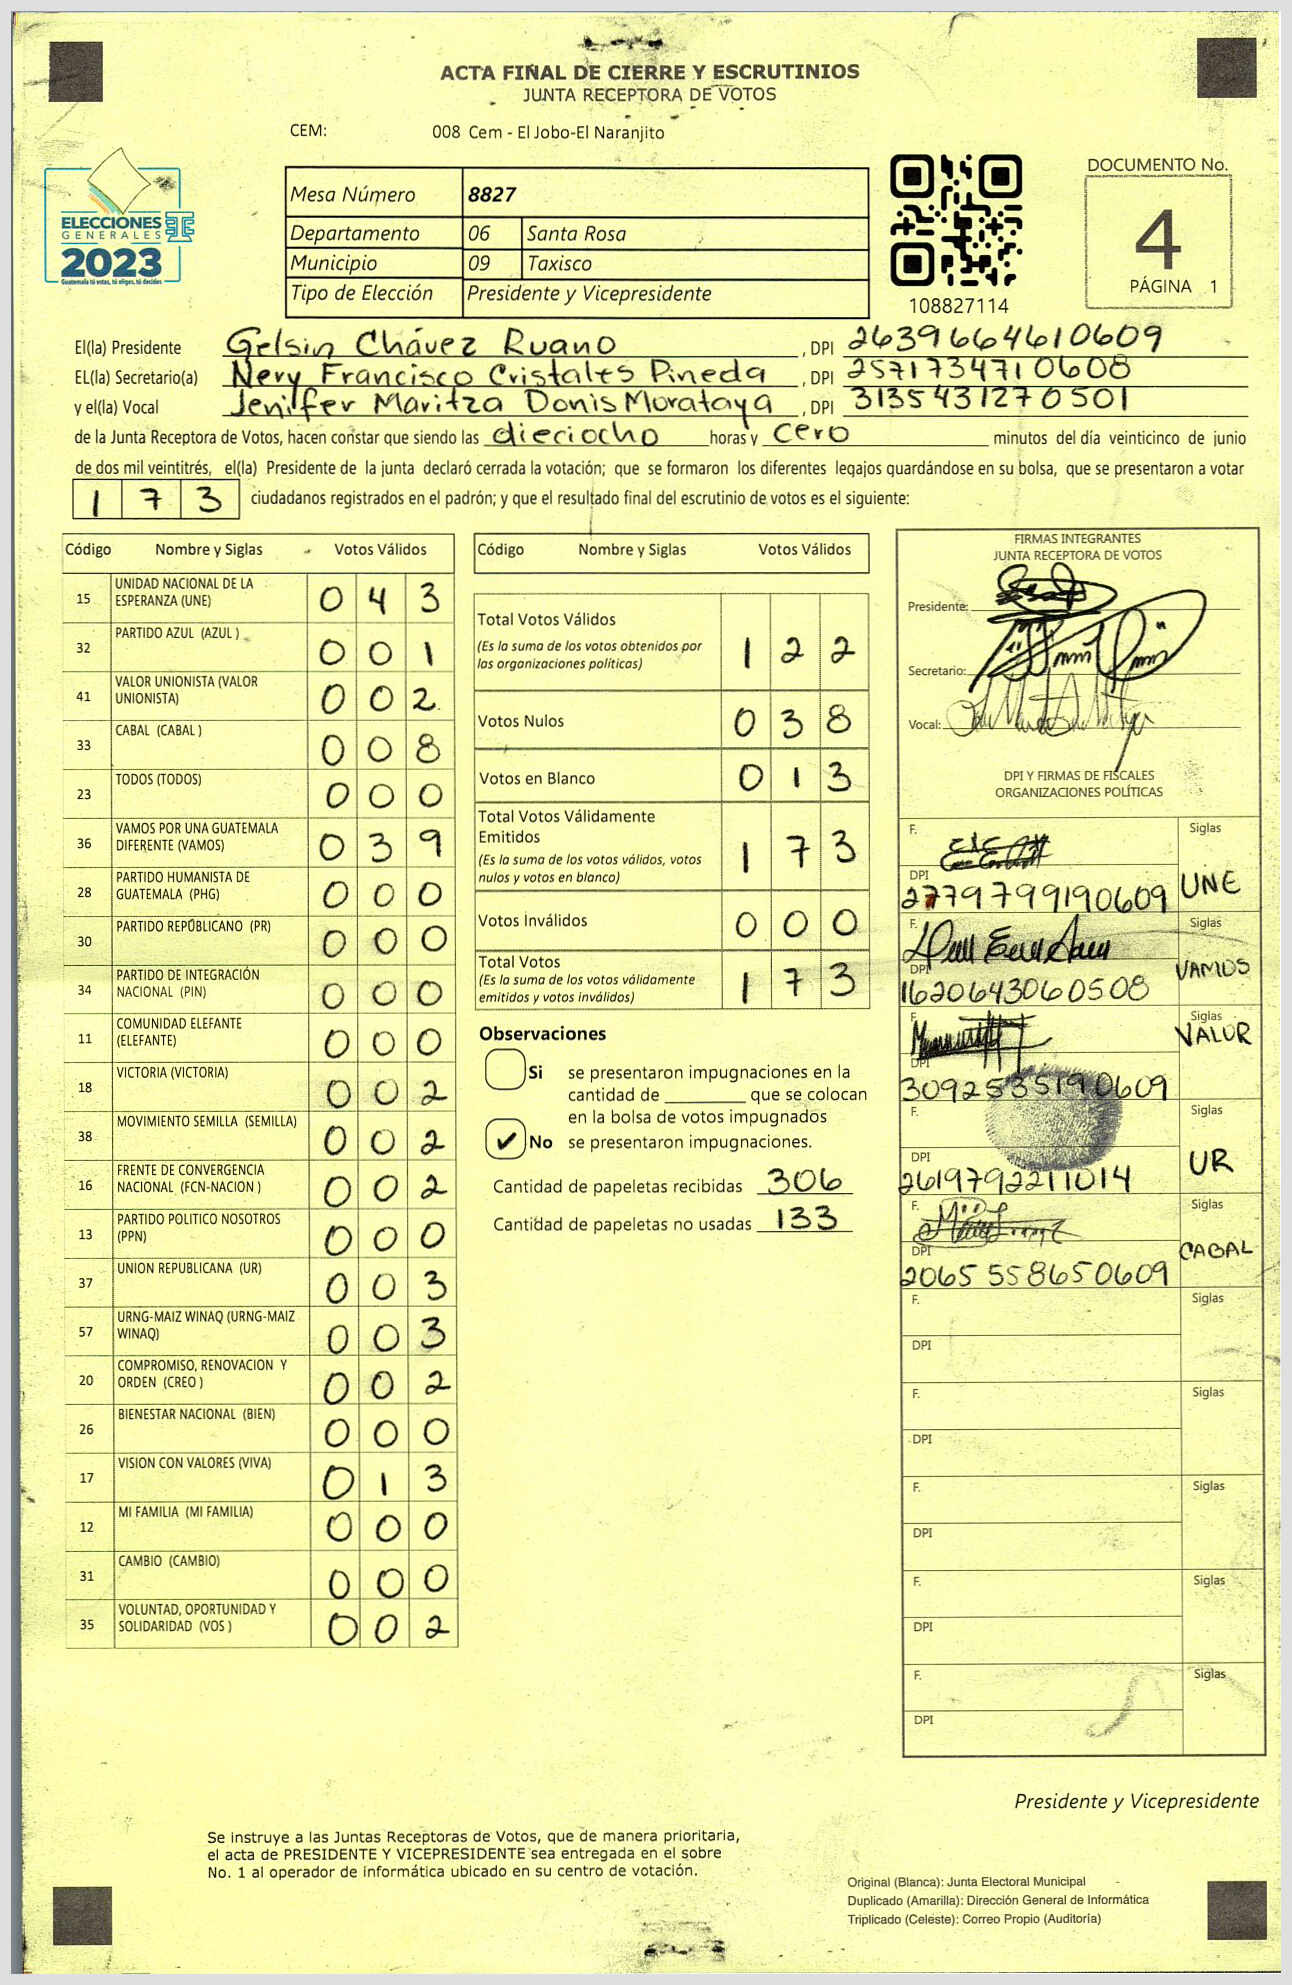 ACTA FINAL DE CIERRE Y ESCRUTINIOS
JUNTA RECEPTORA DE VOTOS
CEM: 008 Cem - El Jobo-El Naranjito
ELECCIONES
GENERALES
2023
Guatemala tú votas, tú eliges, tú decides
Mesa Número 8827
Departamento 06 Santa Rosa
Municipio 09 Taxisco
Tipo de Elección Presidente y Vicepresidente
108827114
DOCUMENTO No.
4
PÁGINA 1
El(la) Presidente Gelsin Chávez Ruano , DPI 2639664610609
EL(la) Secretario(a) Nery Francisco Cristales Pineda , DPI 2571734710608
y el(la) Vocal Jenilfer Maritza Donis Morataya , DPI 3135431270501
de la Junta Receptora de Votos, hacen constar que siendo las dieciocho horas y cero minutos del día veinticinco de junio
de dos mil veintitrés, el(la) Presidente de la junta declaró cerrada la votación; que se formaron los diferentes legajos guardándose en su bolsa, que se presentaron a votar
1 7 3 ciudadanos registrados en el padrón; y que el resultado final del escrutinio de votos es el siguiente:
Código Nombre y Siglas Votos Válidos
15 UNIDAD NACIONAL DE LA ESPERANZA (UNE) 0 4 3
32 PARTIDO AZUL (AZUL ) 0 0 1
41 VALOR UNIONISTA (VALOR UNIONISTA) 0 0 2
33 CABAL (CABAL ) 0 0 8
23 TODOS (TODOS) 0 0 0
36 VAMOS POR UNA GUATEMALA DIFERENTE (VAMOS) 0 3 9
28 PARTIDO HUMANISTA DE GUATEMALA (PHG) 0 0 0
30 PARTIDO REPÚBLICANO (PR) 0 0 0
34 PARTIDO DE INTEGRACIÓN NACIONAL (PIN) 0 0 0
11 COMUNIDAD ELEFANTE (ELEFANTE) 0 0 0
18 VICTORIA (VICTORIA) 0 0 2
38 MOVIMIENTO SEMILLA (SEMILLA) 0 0 2
16 FRENTE DE CONVERGENCIA NACIONAL (FCN-NACION ) 0 0 2
13 PARTIDO POLITICO NOSOTROS (PPN) 0 0 0
37 UNION REPUBLICANA (UR) 0 0 3
57 URNG-MAIZ WINAQ (URNG-MAIZ WINAQ) 0 0 3
20 COMPROMISO, RENOVACION Y ORDEN (CREO ) 0 0 2
26 BIENESTAR NACIONAL (BIEN) 0 0 0
17 VISION CON VALORES (VIVA) 0 1 3
12 MI FAMILIA (MI FAMILIA) 0 0 0
31 CAMBIO (CAMBIO) 0 0 0
35 VOLUNTAD, OPORTUNIDAD Y SOLIDARIDAD (VOS ) 0 0 2
Código Nombre y Siglas Votos Válidos
Total Votos Válidos 1 2 2
(Es la suma de los votos obtenidos por
las organizaciones politicas)
Votos Nulos 0 3 8
Votos en Blanco 0 1 3
Total Votos Válidamente
Emitidos 1 7 3
(Es la suma de los votos válidos, votos
nulos y votos en blanco)
Votos Inválidos 0 0 0
Total Votos 1 7 3
(Es la suma de los votos válidamente
emitidos y votos inválidos)
Observaciones
Si se presentaron impugnaciones en la
cantidad de ________ que se colocan
en la bolsa de votos impugnados
✔ No se presentaron impugnaciones.
Cantidad de papeletas recibidas 306
Cantidad de papeletas no usadas 133
FIRMAS INTEGRANTES
JUNTA RECEPTORA DE VOTOS
Presidente:
Secretario:
Vocal:
DPI Y FIRMAS DE FISCALES
ORGANIZACIONES POLÍTICAS
F. Siglas
DPI UNE
2779799190609
F. Siglas
DPI VAMOS
1620643060508
F. Siglas
DPI VALOR
3092535190609
F. Siglas
DPI UR
2619792211014
F. Siglas
DPI CABAL
2065 558650609
F. Siglas
DPI
F. Siglas
DPI
F. Siglas
DPI
F. Siglas
DPI
F. Siglas
DPI
Presidente y Vicepresidente
Se instruye a las Juntas Receptoras de Votos, que de manera prioritaria,
el acta de PRESIDENTE Y VICEPRESIDENTE sea entregada en el sobre
No. 1 al operador de informática ubicado en su centro de votación.
Original (Blanca): Junta Electoral Municipal
Duplicado (Amarilla): Dirección General de Informática
Triplicado (Celeste): Correo Propio (Auditoría)